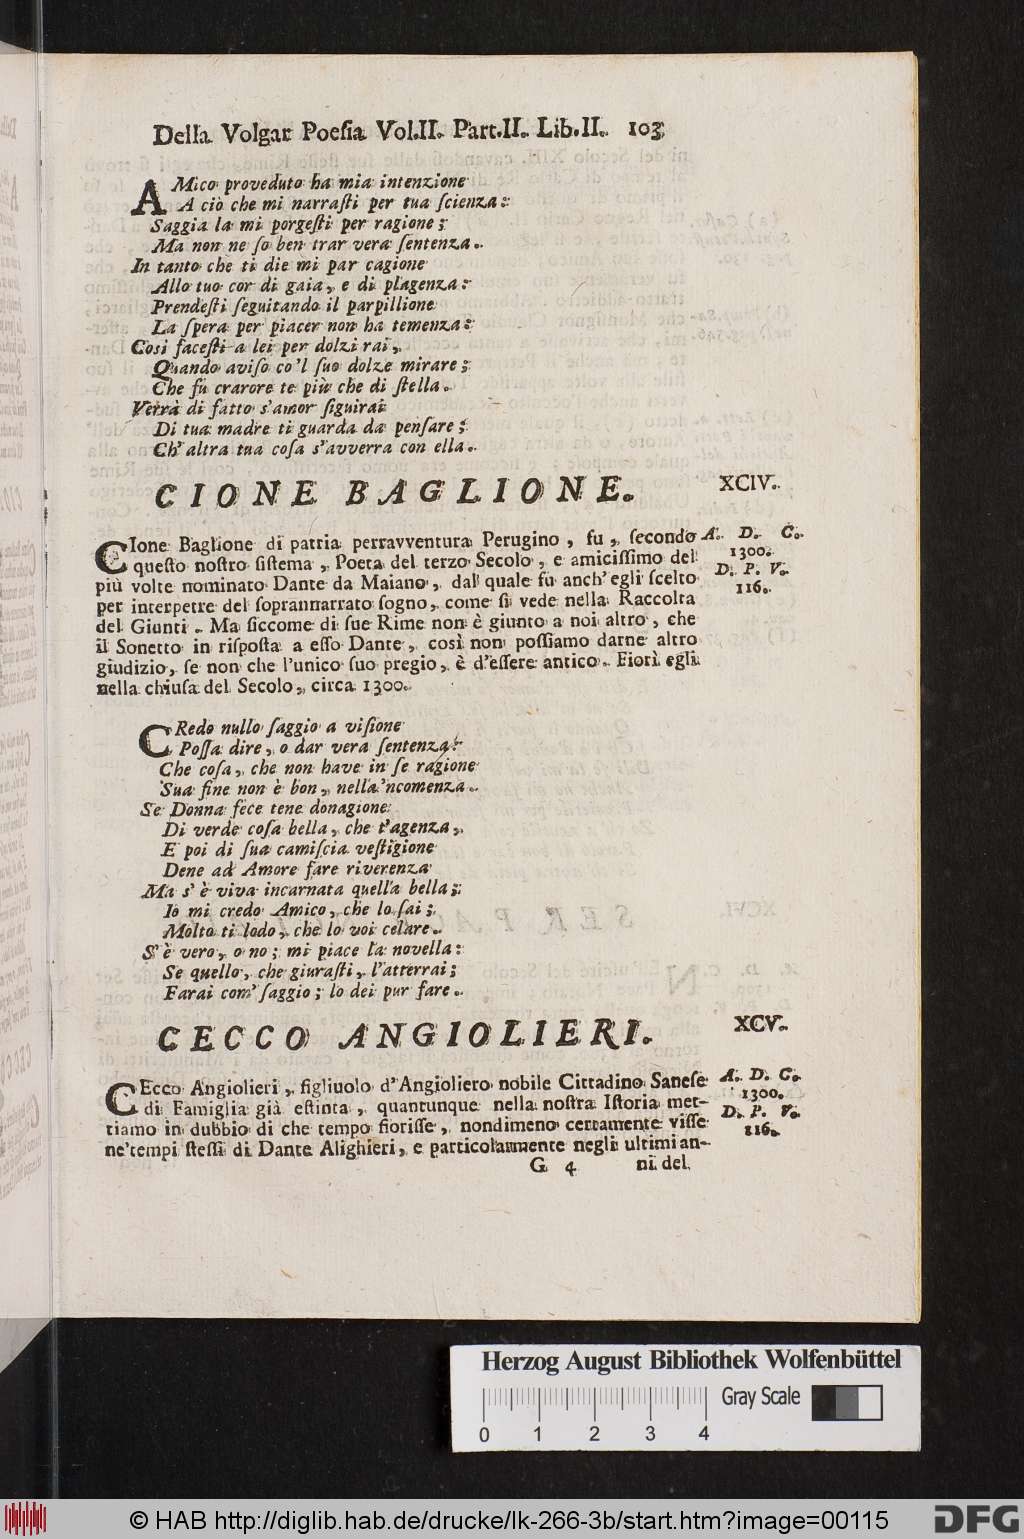 Della Volgar Poeſia Vol.II. Part.II. Lib.II. 103
AMico proveduto ha mia intenzione
A ciò che mi narraſti per tua ſcienza:
Saggia la mi porgeſti per ragione;
Ma non ne ſo ben trar vera ſentenza.
In tanto che ti die mi par cagione
Allo tuo cor di gaia, e di plagenza:
Prendeſti ſeguitando il parpillione
La ſpera per piacer non ha temenza:
Così faceſti a lei per dolzi rai,
Quando aviſo co'l ſuo dolze mirare;
Che fú crarore te più che di ſtella.
Verrà di fatto s'amor ſiguirai
Di tua madre ti guarda da penſare;
Ch' altra tua coſa s'avverra con ella.
CIONE BAGLIONE. XCIV.
CIone Baglione di patria perravventura Perugino, fu, ſecondo A. D. C.
queſto noſtro ſiſtema, Poeta del terzo Secolo, e amiciſſimo del 1300.
più volte nominato Dante da Maiano, dal quale fu anch' egli ſcelto D. P. V.
per interpetre del ſoprannarrato ſogno, come ſi vede nella Raccolta 116.
del Giunti. Ma ſiccome di ſue Rime non è giunto a noi altro, che
il Sonetto in riſpoſta a eſſo Dante, così non poſſiamo darne altro
giudizio, ſe non che l'unico ſuo pregio, è d'eſſere antico. Fiorì egli
nella chiuſa del Secolo, circa 1300.
CRedo nullo ſaggio a viſione
Poſſa dire, o dar vera ſentenza:
Che coſa, che non have in ſe ragione
Sua fine non è bon, nella'ncomenza.
Se Donna fece tene donagione
Di verde coſa bella, che t'agenza,
E poi di ſua camiſcia veſtigione
Dene ad Amore fare riverenza
Ma s' è viva incarnata quella bella;
Io mi credo Amico, che lo ſai;
Molto ti lodo, che lo voi celare.
S' è vero, o no; mi piace la novella:
Se quello, che giuraſti, l'atterrai;
Farai com' ſaggio; lo dei pur fare.
CECCO ANGIOLIERI. XCV.
CEcco Angiolieri, figliuolo d'Angioliero nobile Cittadino Saneſe A. D. C.
di Famiglia già eſtinta, quantunque nella noſtra Iſtoria met- 1300.
tiamo in dubbio di che tempo fioriſſe, nondimeno certamente viſſe D. P. V.
ne'tempi ſteſſi di Dante Alighieri, e particolarmente negli ultimi an- 116.
G 4 ni del
Herzog August Bibliothek Wolfenbüttel
Gray Scale
0 1 2 3 4
© HAB http://diglib.hab.de/drucke/lk-266-3b/start.htm?image=00115
DFG